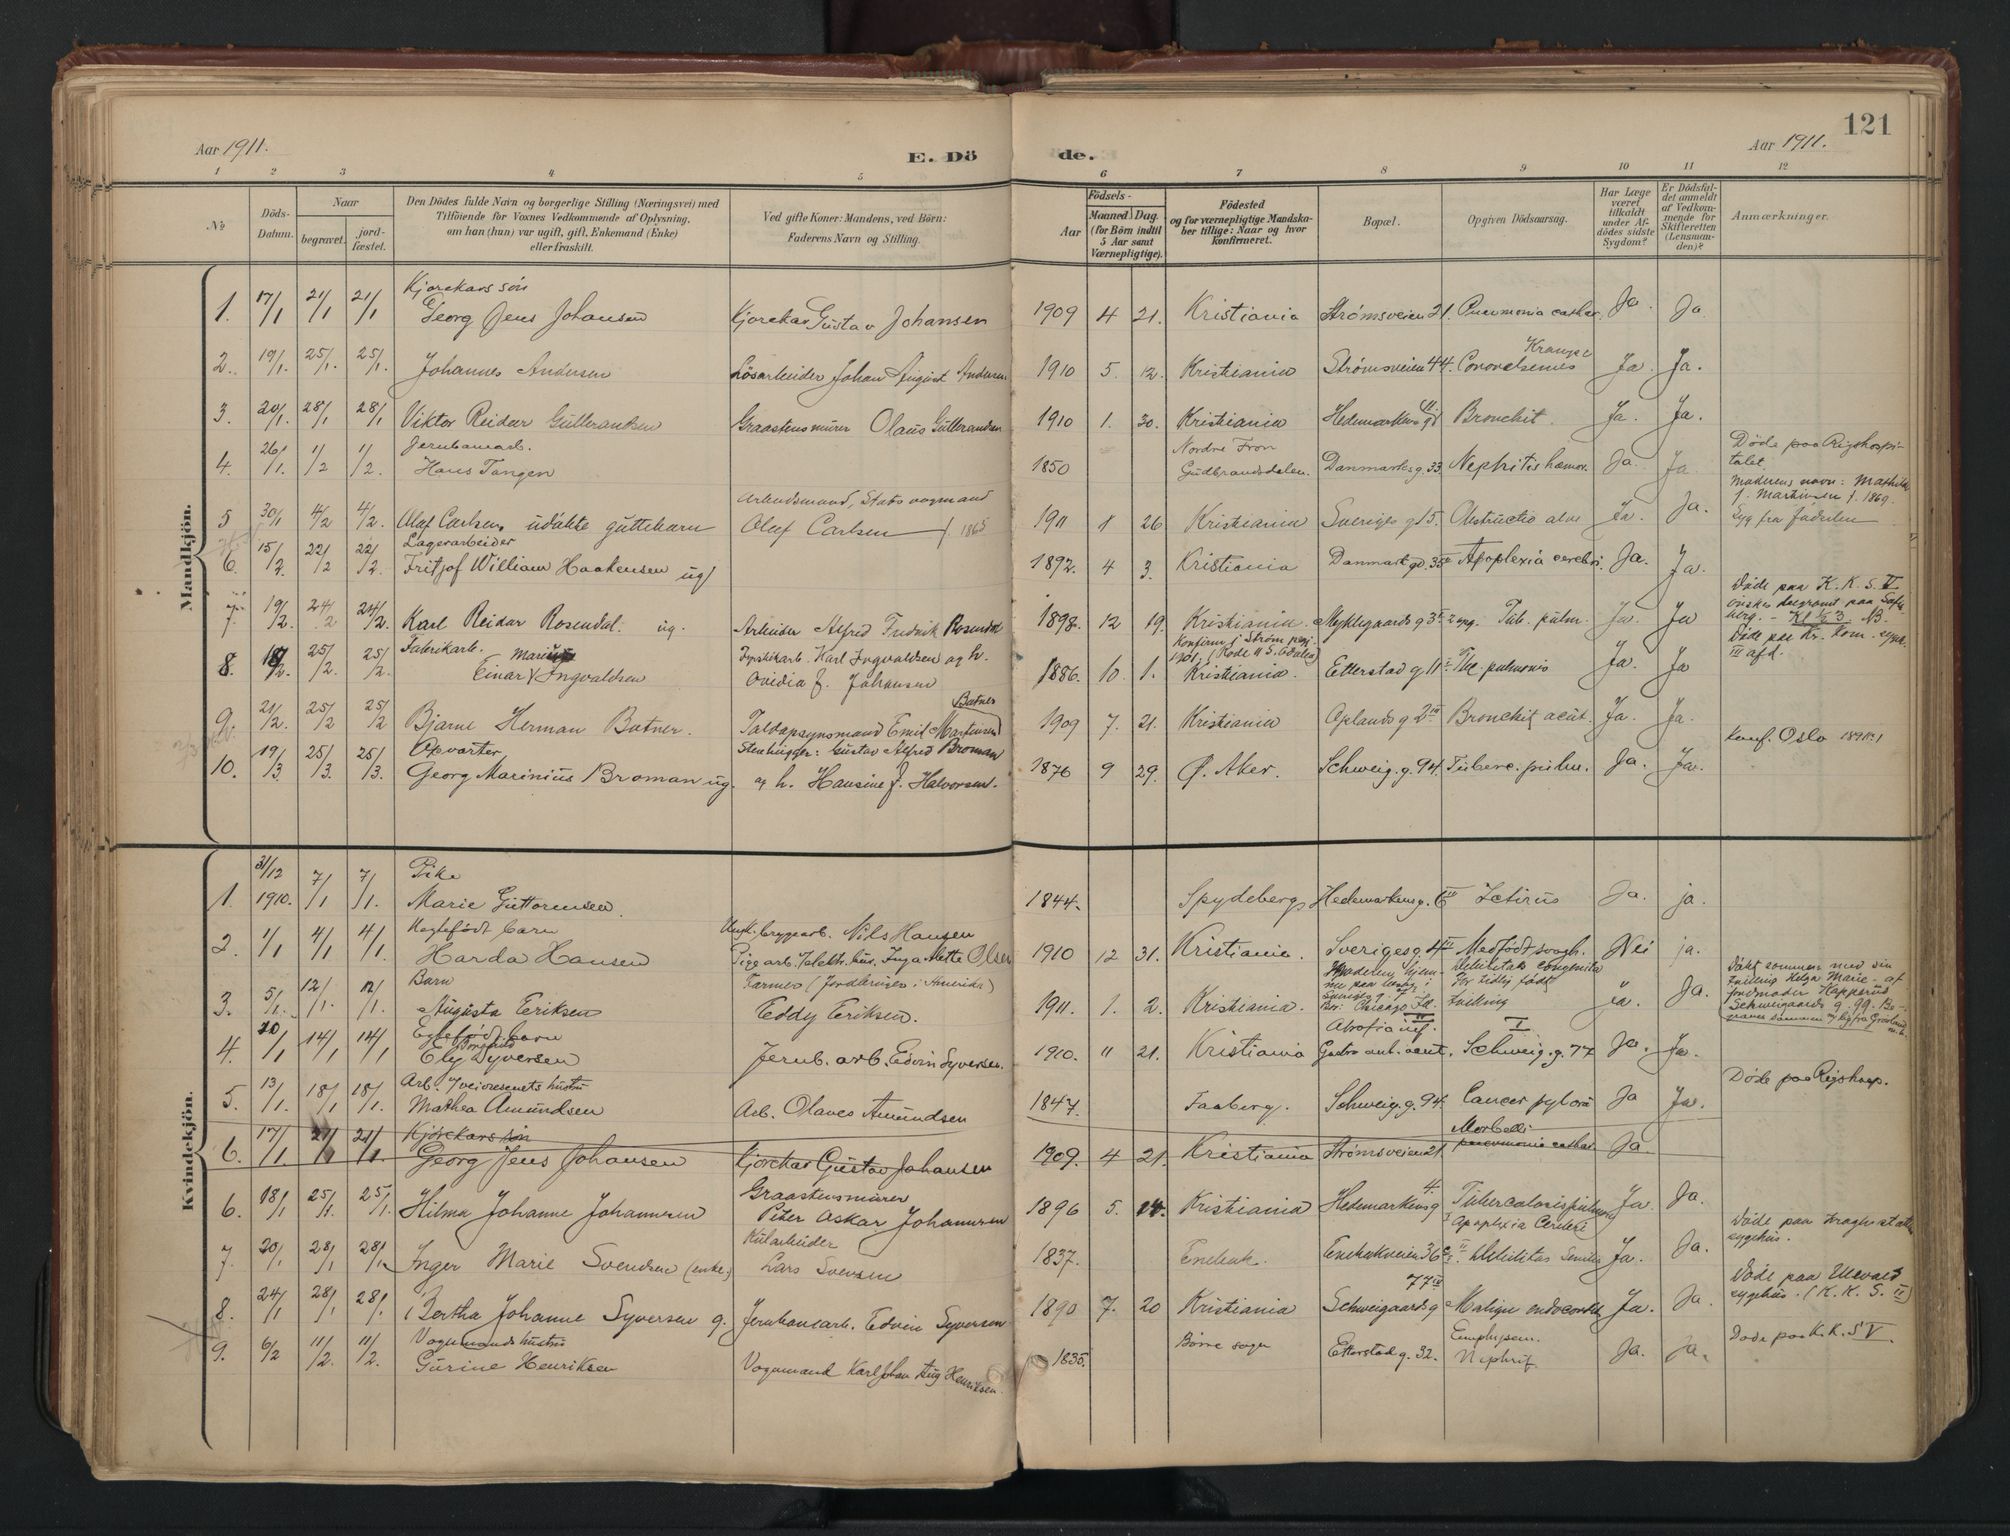 Aar 1911.
E. Dö
de.
Aar 1911.
121
1 2 3 4 5 6 7 8 9 10 11 12
№
Döds-Datum.
Naar
begravet.
jord-fæstet.
Den Dödes fulde Navn og borgerlige Stilling (Næringsvei) med
Tilföiende for Voxnes Vedkommende af Oplysning,
om han (hun) var ugift, gift, Enkemand (Enke)
eller fraskilt.
Ved gifte Koner: Mandens, ved Börn:
Faderens Navn og Stilling.
Födsels-
Aar
Maaned Dag.
(for Börn indtil
5 Aar samt
Værnepligtige).
Födested
og for værnepligtige Mandska-
ber tillige: Naar og hvor
konfirmeret.
Bopæl.
Opgiven Dödsaarsag.
Har Læge
været
tilkaldt
under Af-
dödes sidste
Sygdom?
Er Dödsfal-
det anmeldt
af Vedkom-
mende for
Skifteretten
(Lensman-
den)?
Anmærkninger.
Mandkjön.
Kjørekars søn
1. 17/1 21/1 21/1 Georg Jens Johansen Kjørekar Gustav Johansen 1909 4 21. Kristiania Strømsveien 21. Pneumonia cathar. Ja. Ja.
2. 19/1. 25/1. 25/1. Johannes Andersen Løsarbeider Johan August Andersen 1910 5. 12. Kristiania Strømsveien 44. Ja Ja.
3. 20/1. 28/1 28/1 Viktor Reidar Gulbrandsen Graastensmürer Olaus Gulbrandsen 1910 1. 30. Kristiania Hedemarkens g Bronchit. Ja. Ja.
Jernbanearb.
4. 26/1. 1/2 1/2. Hans Tangen 1850 Nordre Fron
Gudbrandsdalen. Danmarks g. 33. Nephritis hæmor. Ja. Ja
Døde paa Rigshospi-
talet.
Arbeidsmand, Stats vogmand
5 30/1 4/2 4/2. Olaf Carlsens udøbte guttebarn Olaf Carlsen f. 1865 1911 1 26. Kristiania Sveriges g 15. Obstructio alvi Ja. Ja.
Moderens navn: Mathilde
f. Martinsen f. 1869.
Lagerarbeider
6. 15/2. 22/2 22/2. Fritjof William Haakensen ug 1892. 4 3. Kristiania Danmark gd. 35 Apoplexia cerebri. Ja. Ja.
7. 19/2. 24/2 24/2. Karl Reidar Rosendal. ug. Arbeider Alfred Fredrik Rosendal 1898. 12 19. Kristiania. Tub. pulm. Ja. Ja
Døde paa K. K. S. V
Fabrikarb.
8. 18/2. 25/2. 25/2. Einar Marius Ingvaldsen Karl Ingvaldsen og h.
Ovidia f. Johansen 1886. 10. 1. Kristiania. Etterstad g 11 Tbc. pulmonis Ja. Ja
Døde paa Kr. kom. sygeh.
III afd.
9. 21/2. 25/2 25/2 Bjarne Herman Butner. Toldopsynsmand Emil Martinsen Butner 1909 7. 21. Kristiania Oplands g 2 III Bronchit acut. Ja. Ja.
Opvarter
10. 19/3 25/3. 25/3. Georg Marinius Broman ug. Stenhugger: Gustav Alfred Broman
og h. Hansine f. Halvorsen. 1876 9 29. Ø. Aker. Schweig. g. 94. Tuberc. pulm. Ja. Ja.
Konf. Oslo 1891
Kvindekjön.
Pike
1. 31/12 1910. 7/1 7/1. Marie Guttormsen. 1844. Spydeberg Hedemarkens g. 6 III Ictirus Ja. ja.
Uegtefødt barn
2. 1/1 4/1 4/1 Harda Hansen Nils Hansen
Inga Mette Olsen 1910 12 31. Kristiania. Sverigesg. 4 II Medfødt svagh. Nei ja.
Barn
3. 5/1. 12/1. 12/1. Augusta Eriksen Farmer (Jordbruger i Amerika)
Eddy Eriksen. 1911. 1. 2. Kristiania. Debilitas congenita
For tidlig født
Tvilling ja. Ja.
Døbt sammen med sin
tvilling Helga Marie
Egtefødt barn
4. 10/1 14/1 14/1 Syversen Jernb. arb. Edvin Syversen. 1910. 11 21. Kristiania Atrofia inf.
Gastro ent. acut. Schweig. g. 77 I Ja. Ja.
5. 13/1. 18/1 18/1. Mathea Amundsen Arb. Olaves Amundsen 1847. Faaberg. Schweig. g. 94. Cancer pylori Ja Ja.
Døde paa Rigshosp.
Kjørekars søn
6. 17/1. 21/1 21/1. Georg Jens Johansen Kjørekar Gustav Johansen 1909. 4 21. Kristiania Strømsveien 21. Morbilli
pneumonia cathar. Ja.
6. 18/1 25/1. 25/1. Hilma Johanne Johannesen Graastensmürer
Peter Oskar Johannesen 1896 5. 14. Kristiania Hedemarkens g 4. Tuberculosis pulmon
Apoplexia Cerebri Ja. Ja.
7. 20/1. 28/1. 28/1. Inger Marie Svendsen (enke.) Kularbeider
Lars Svensen 1837. Enebak. Enebakveien 36 Debilitas Senilis Ja. Ja.
Døde paa Krogh støttens
sygehus.
8. 24/1 28/1 28/1. Bertha Johanne Syversen g. Jernbanearb. Edvin Syversen 1890 7. 20 Kristiania Schweigaards g 77 IV Malign endocardit Ja. Ja.
Døde paa Ullevaal
sygehus. (K. K. S. II)
Vognmands hustru
9. 6/2 11/2. 11/2. Gurine Henriksen Vognmand Karl Johan Aug Henriksen. 1835. Børre sogn Etterstad g. 32. Emphysem.
Nephrit Ja. Ja.
Døde paa K. K. S V.